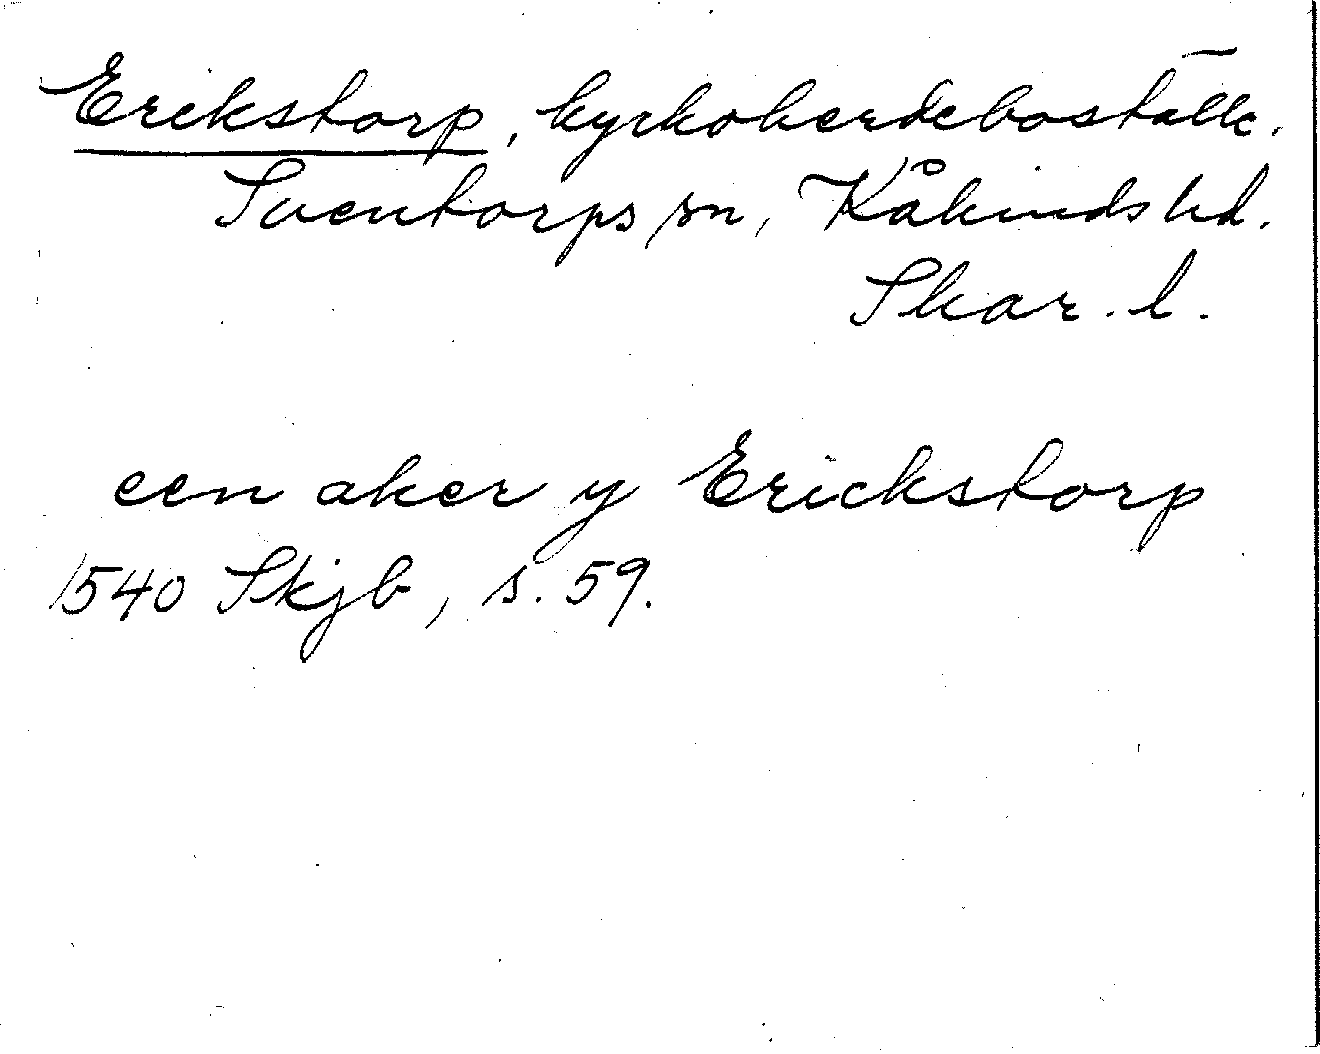 Erikstorp, kyrkoherdeboställe.
Suentorps sn, Kåkinds hd.
Skar. l.
een aker y Erickstorp
1540 Skjb, s. 59.